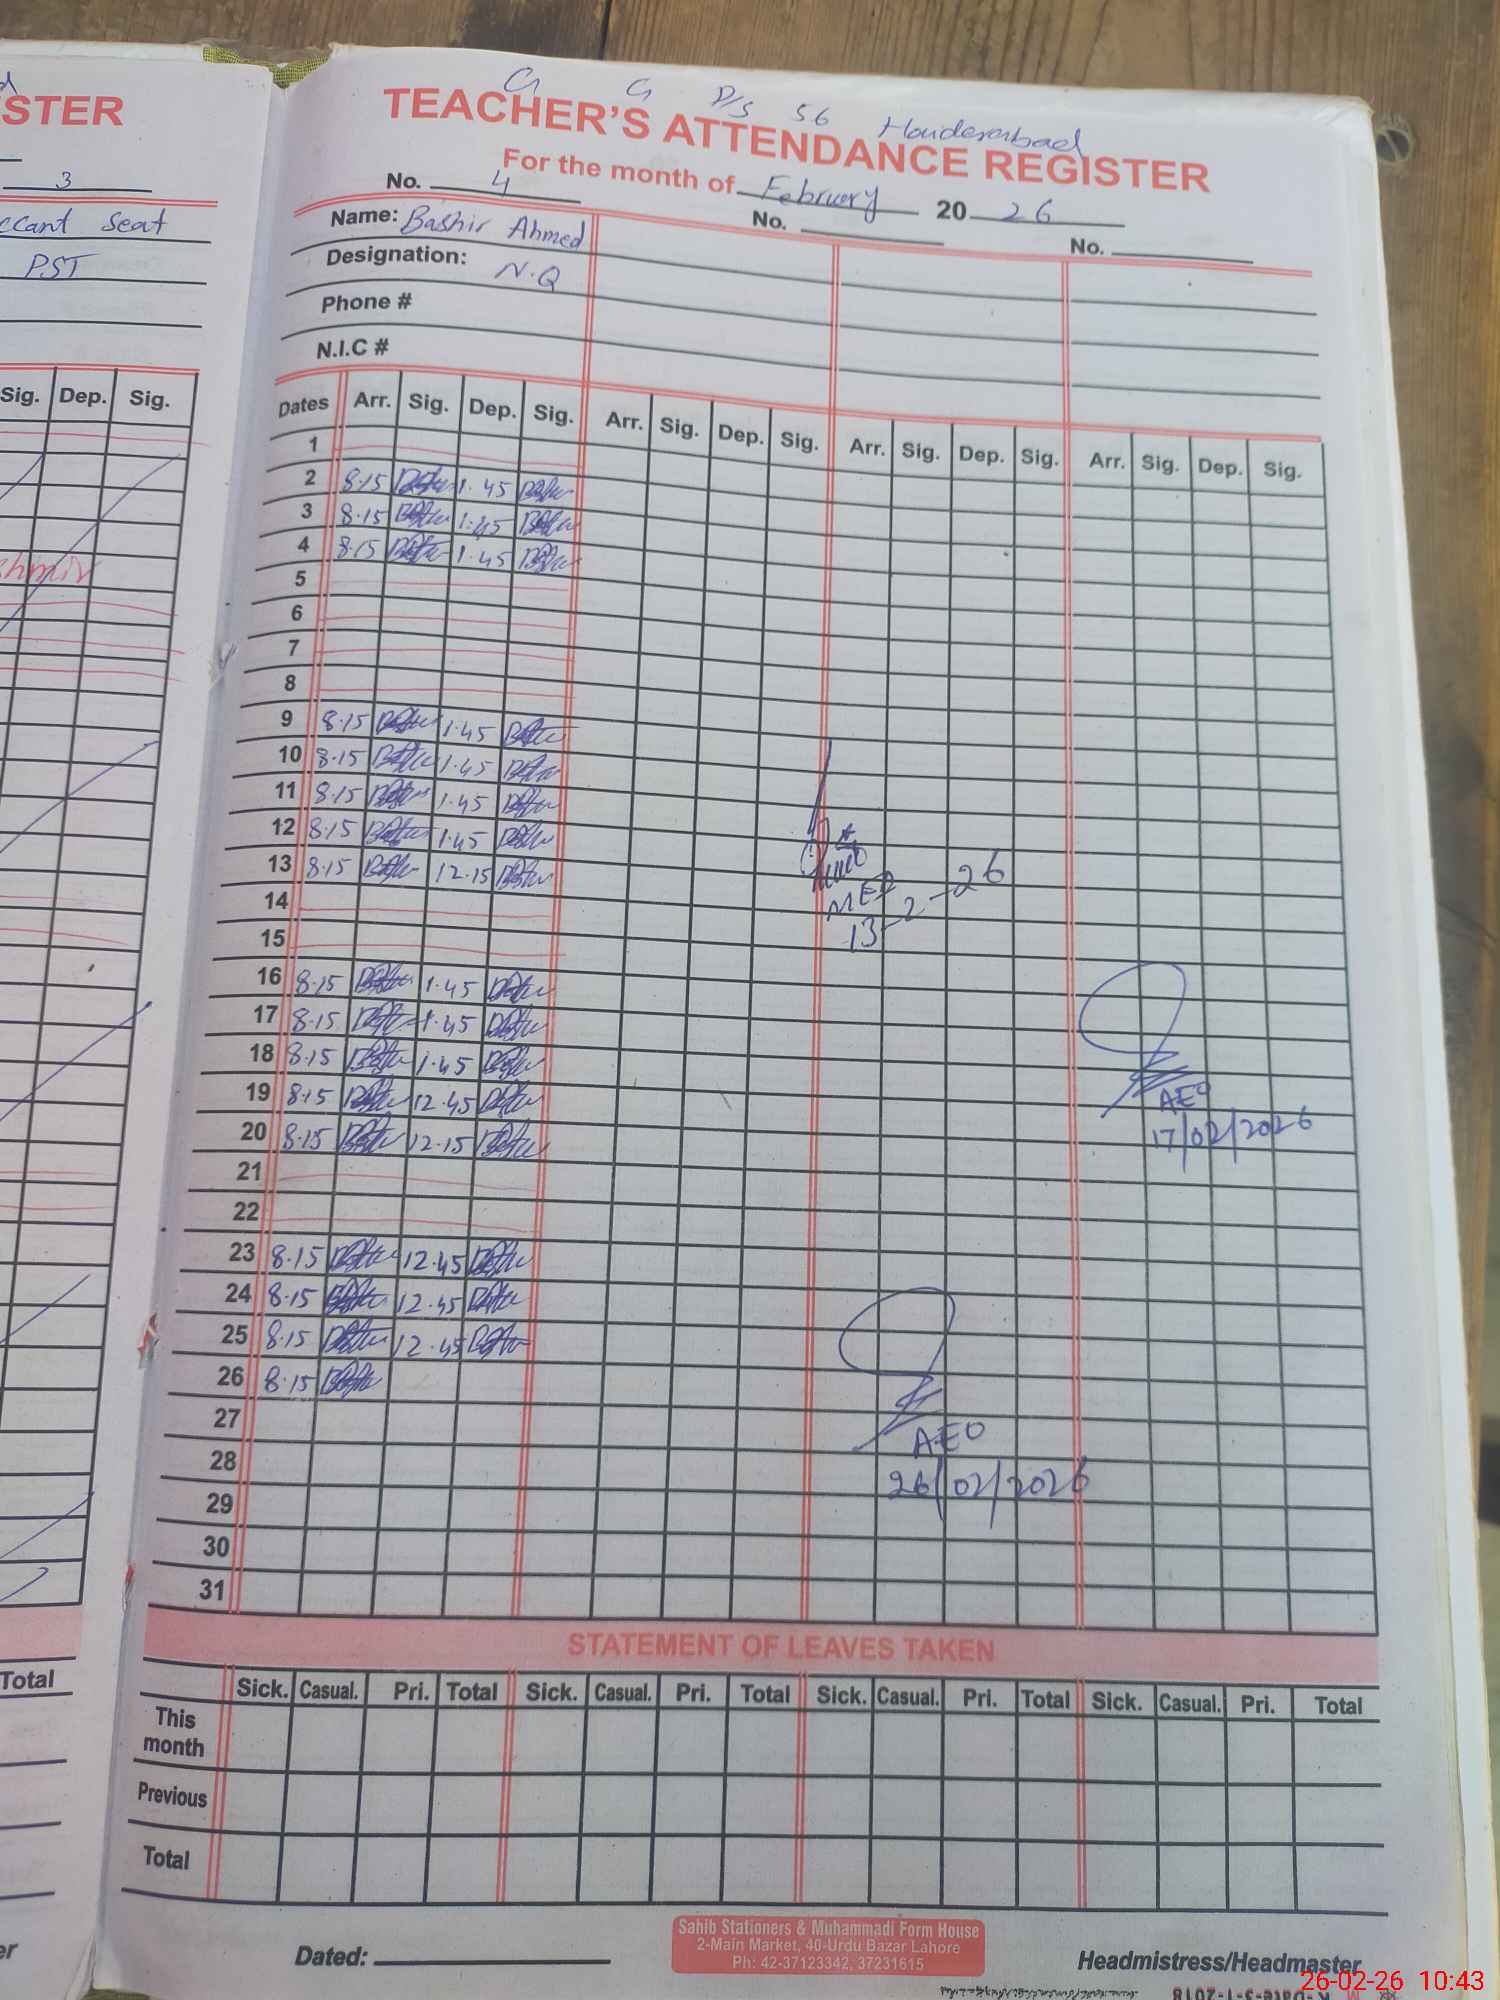 STER
3
ccant Seat
PST
Sig. Dep. Sig.
shmir
Total
G G P/S 56
TEACHER'S ATTENDANCE REGISTER
For the month of February 20 26
No. 4 No. No.
Name: Bashir Ahmed
Designation: N.Q
Phone #
N.I.C #
Dates Arr. Sig. Dep. Sig. Arr. Sig. Dep. Sig. Arr. Sig. Dep. Sig. Arr. Sig. Dep. Sig.
1
2 8.15 1.45
3 8.15 1.45
4 8.15 1.45
5
6
7
8
9 8.15 1.45
10 8.15 1.45
11 8.15 1.45
12 8.15 1.45
13 8.15 12.15
14
15
13-2-26
16 8.15 1.45
17 8.15 1.45
18 8.15 1.45
19 8.15 12.45
20 8.15 12.15
AEO
17/02/2026
21
22
23 8.15 12.45
24 8.15 12.45
25 8.15 12.45
26 8.15
27
28
AEO
26/02/2026
29
30
31
STATEMENT OF LEAVES TAKEN
Sick. Casual. Pri. Total Sick. Casual. Pri. Total Sick. Casual. Pri. Total Sick. Casual. Pri. Total
This
month
Previous
Total
Dated:
Sahib Stationers & Muhammadi Form House
2-Main Market, 40-Urdu Bazar Lahore
Ph: 42-37123342, 37231615
Headmistress/Headmaster
26-02-26 10:43